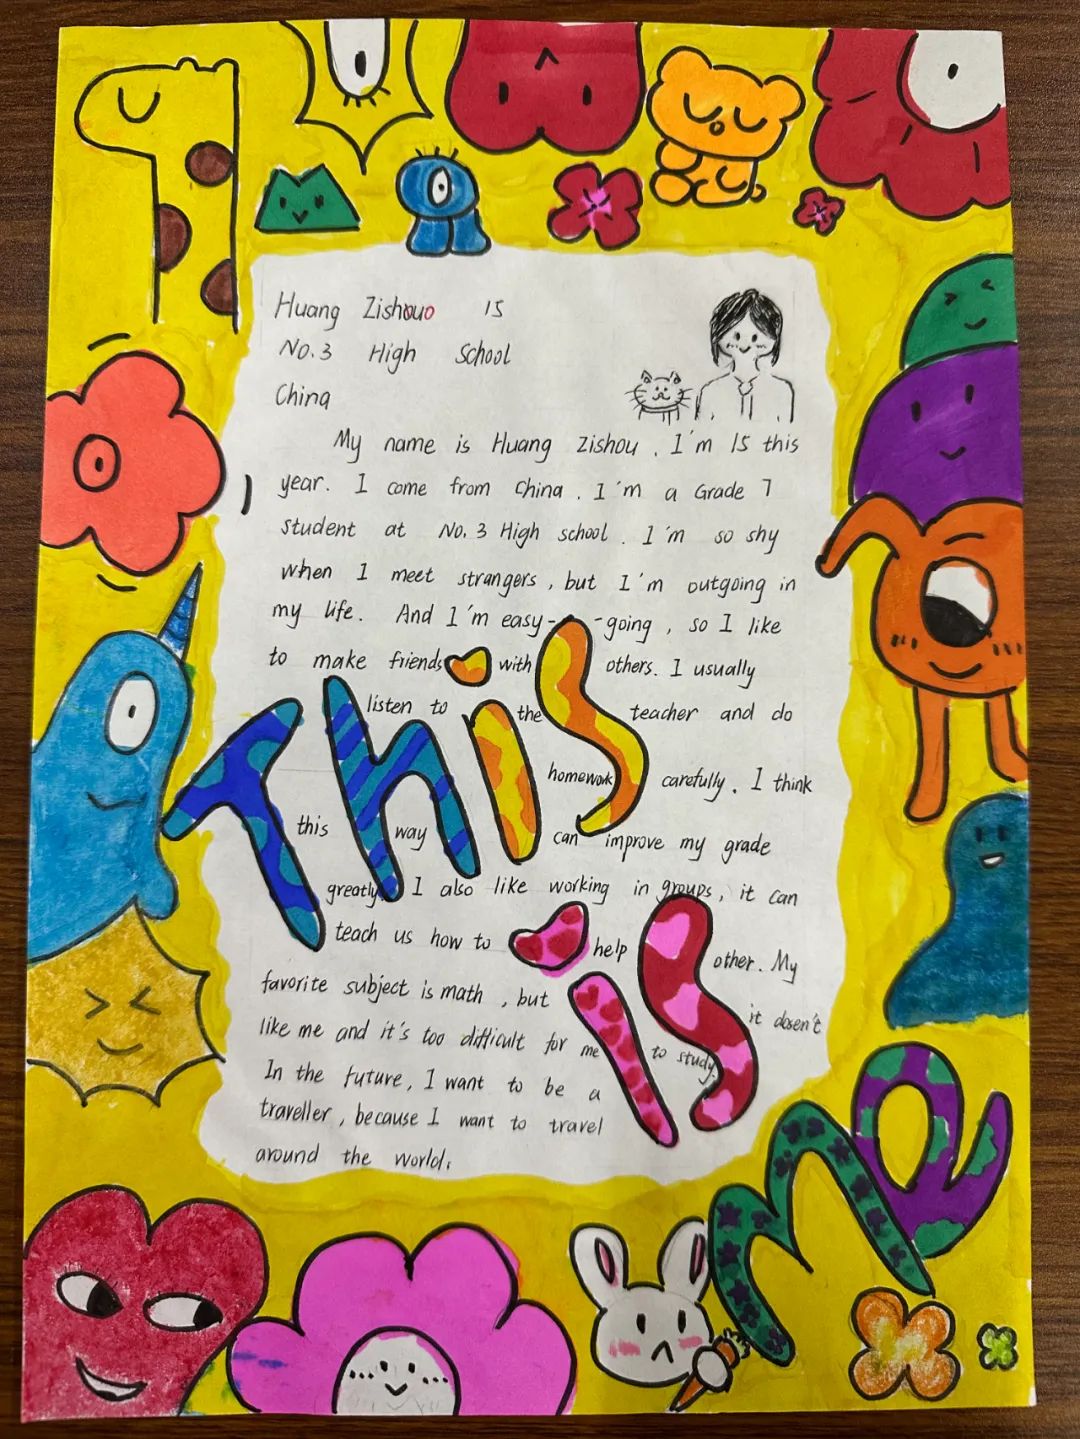 Huang Zishouo 15
No.3 High School
China
My name is Huang Zishou. I'm 15 this
year. I come from China. I'm a Grade 7
student at No.3 High school. I'm so shy
when I meet strangers, but I'm outgoing in
my life. And I'm easy--going, so I like
to make friends with others. I usually
listen to the teacher and do
homework carefully. I think
this way can improve my grade
greatly. I also like working in groups, it can
teach us how to help other. My
favorite subject is math, but it dosen't
like me and it's too difficult for me to study.
In the future, I want to be a
traveller, because I want to travel
around the world.
This
is
me